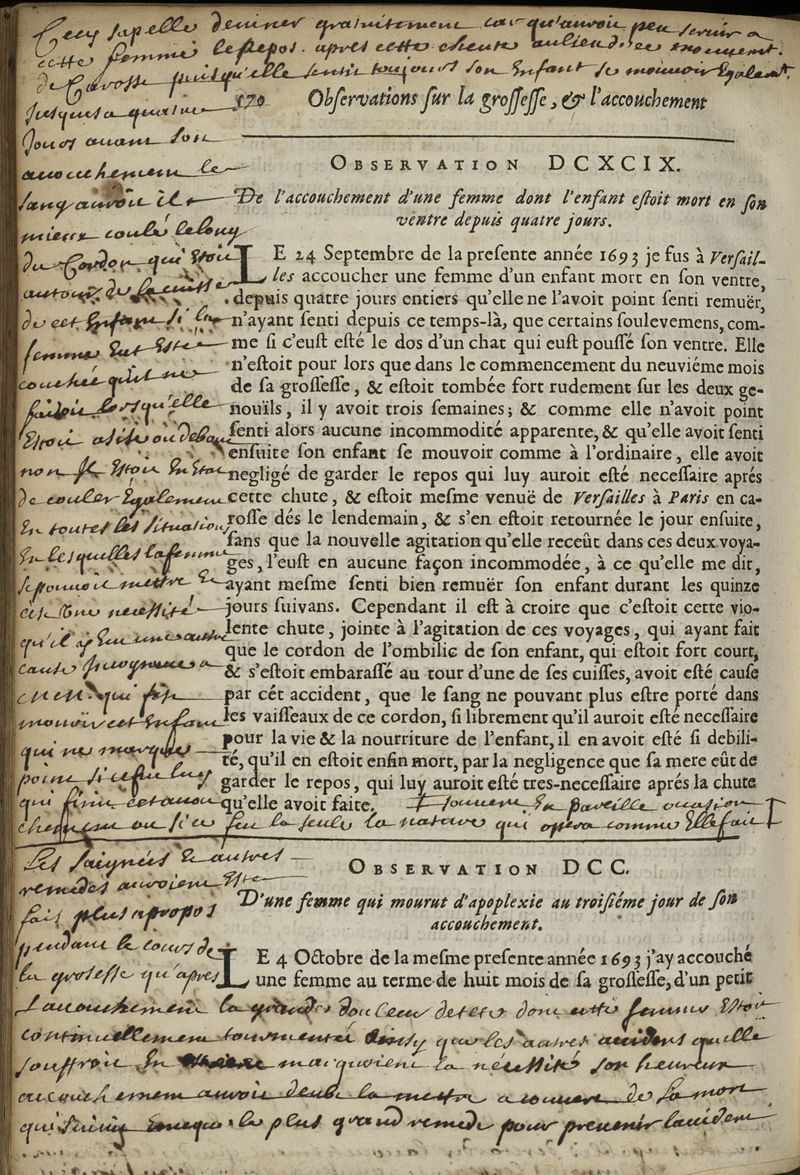 Cecy sapelle deviner gratuitement car qu'auroit peu servir a
cette femme le repos apres cette cheute au lieu de ce mouvement
de Carosse puisqu'elle sentit toujours son Enfant se mouvoir Egalemt.
570 Obſervations ſur la groſſeſſe, & l'accouchement
Jusques a quatre
Jours avant son
accouchement le
sang auroit il
mieux coulé le long
du Cordon qui Estoit
autour de la cuisse
de cet Enfant si la
femme Eut Esté
couchée qu'il ne
faisoit lorsqu'elle
Estoit assise ou debout
non Il Estoit En Etat
de couler Egalement
En toutes les situations
En lesquelles la femme
se pouvoit mettre Et
c'est une necessité
qu'il ay Eu une autre
cause Incognue a
qui fit
mourir cet Enfant
qui ne marque
point si ce fut luy
qui finit cet accou
chement ou si ce fut la seule la nature qui opera comme Elle fait
OBSERVATION DCXCIX.
De l'accouchement d'une femme dont l'enfant eſtoit mort en ſon
ventre depuis quatre jours.
LE 24 Septembre de la preſente année 1693 je fus à Verſail-
les accoucher une femme d'un enfant mort en ſon ventre,
depuis quatre jours entiers qu'elle ne l'avoit point ſenti remuër,
n'ayant ſenti depuis ce temps-là, que certains ſoulevemens, com-
me ſi c'euſt eſté le dos d'un chat qui euſt pouſſé ſon ventre. Elle
n'eſtoit pour lors que dans le commencement du neuviéme mois
de ſa groſſeſſe, & eſtoit tombée fort rudement ſur les deux ge-
nouïls, il y avoit trois ſemaines; & comme elle n'avoit point
ſenti alors aucune incommodité apparente, & qu'elle avoit ſenti
enſuite ſon enfant ſe mouvoir comme à l'ordinaire, elle avoit
negligé de garder le repos qui luy auroit eſté neceſſaire aprés
cette chute, & eſtoit meſme venuë de Verſailles à Paris en ca-
roſſe dés le lendemain, & s'en eſtoit retournée le jour enſuite,
ſans que la nouvelle agitation qu'elle receût dans ces deux voya-
ges, l'euſt en aucune façon incommodée, à ce qu'elle me dit,
ayant meſme ſenti bien remuër ſon enfant durant les quinze
jours ſuivans. Cependant il eſt à croire que c'eſtoit cette vio-
lente chute, jointe à l'agitation de ces voyages, qui ayant fait
que le cordon de l'ombilic de ſon enfant, qui eſtoit fort court,
& s'eſtoit embaraſſé au tour d'une de ſes cuiſſes, avoit eſté cauſe
par cét accident, que le ſang ne pouvant plus eſtre porté dans
les vaiſſeaux de ce cordon, ſi librement qu'il auroit eſté neceſſaire
pour la vie & la nourriture de l'enfant, il en avoit eſté ſi debili-
té, qu'il en eſtoit enfin mort, par la negligence que ſa mere eût de
garder le repos, qui luy auroit eſté tres-neceſſaire aprés la chute
qu'elle avoit faite. ‡ souvent En pareille occasion
OBSERVATION DCC.
D'une femme qui mourut d'apoplexie au troiſiéme jour de ſon
accouchement.
LE 4 Octobre de la meſme preſente année 1693 j'ay accouché
une femme au terme de huit mois de ſa groſſeſſe, d'un petit
Les saignées Et autres
remedes auroient Esté
fais plus a propos
pendant le cours de
la grosesse qu'apres
Laccouchement la grande douleur de teste dont cette femme Estoit
continuellement tourmenté ainsy que les autres accidens quelle
souffroit En marquoient la nécessité son heureux
accouchement auroit deub la mettre a couvert de la mort
qui suivit le plus grand remede pour prevenir laccident